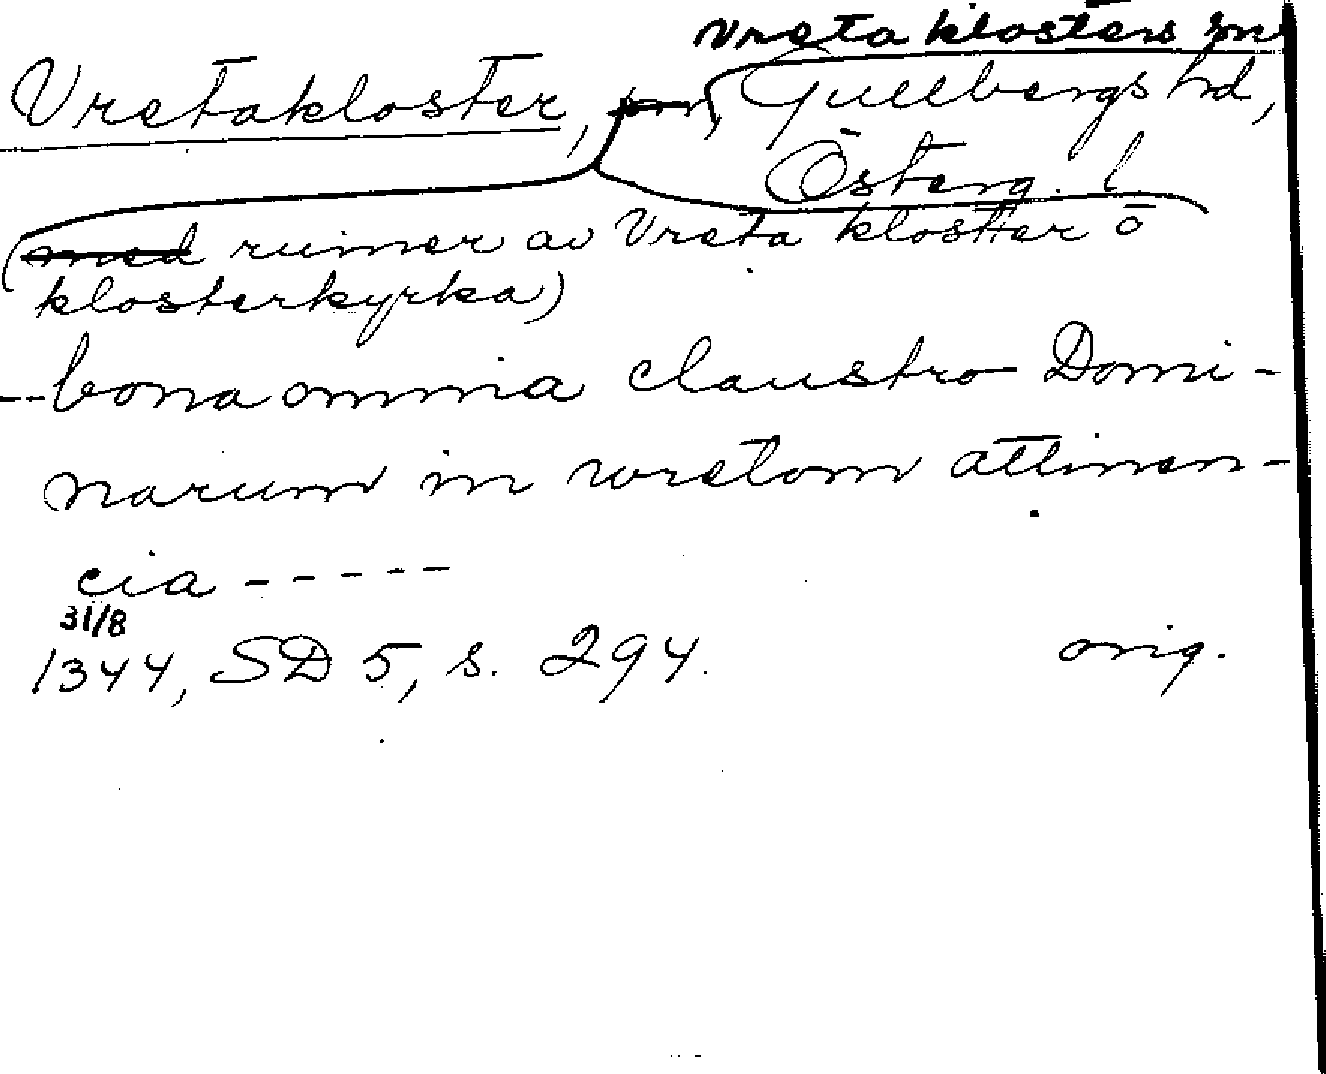 Vreta klosters sn
Vretakloster, sn, Gullbergs hd,
Österg. l.
(med ruiner av Vreta kloster o
klosterkyrka)
--bona omnia claustro Domi-
narum in wretom attinen-
cia -----
31/8
1344, SD 5, s. 294. orig.